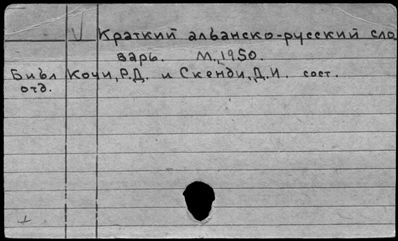 V Краткий албанско-русский сло
варь. М., 1950.
Библ Кочи, Р.Д. и Скенди, Д.И. сост.
отд.